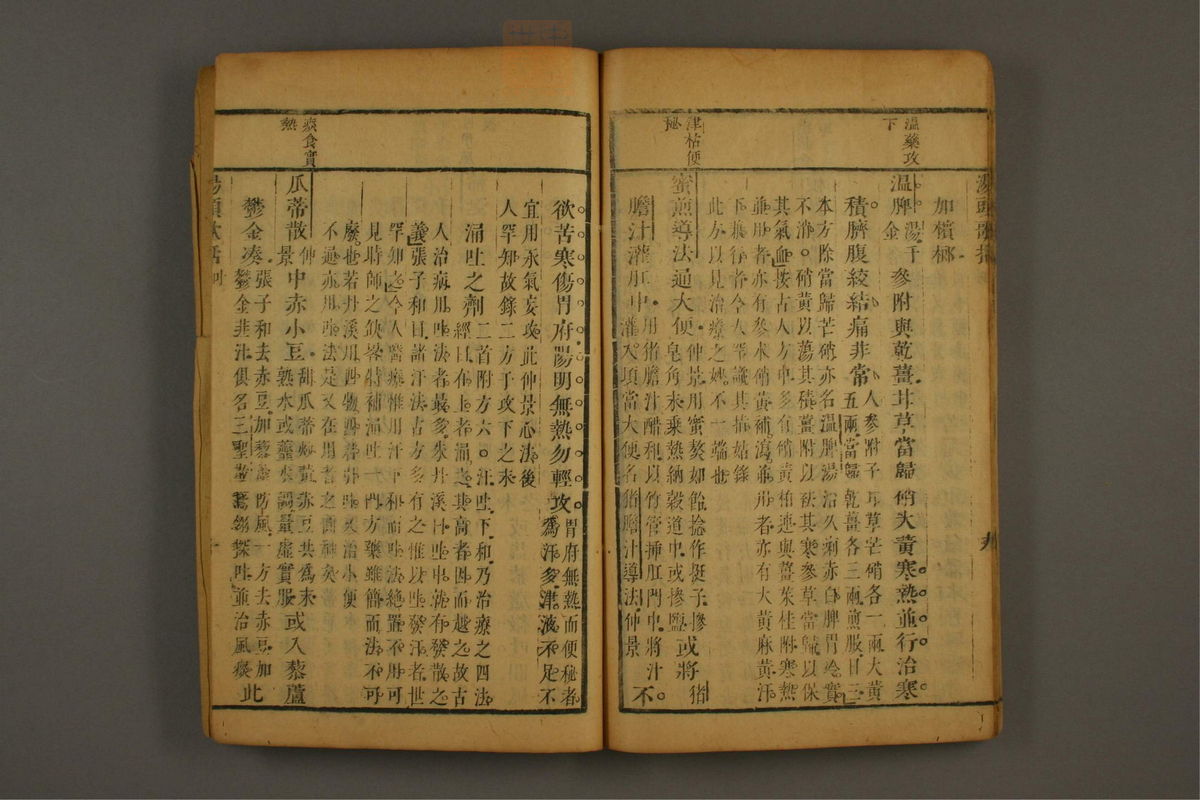 湯頭歌括
九
加檳榔
溫藥攻下
溫脾湯 千金
參附與乾薑甘草當歸硝大黃寒熱並行治寒
積臍腹絞結痛非常 人參附子甘草芒硝各一兩大黃五兩當歸乾薑各三兩煎服日三
本方除當歸芒硝亦名溫脾湯治久痢赤白脾胃冷實
不消硝黃以蕩其積薑附以祛其寒參草當歸以保
其氣血按古人方中多有硝黃柏連與薑茱桂附寒熱
並用者亦有參朮硝黃補瀉並用者亦有大黃麻黃汗
下兼行者今人罕識其指姑錄
此方以見治療之妙不一端也
津枯便秘
蜜煎導法通大便 仲景用蜜熬如飴捻作挺子摻皂角末乘熱納穀道中或摻鹽 或將猪
膽汁灌肛中 用猪膽汁醋和以竹管插肛門中將汁灌入頃當大便名猪膽汁導法仲景 不
欲苦寒傷胃府陽明無熱勿輕攻 胃府無熱而便秘者為汗多津液不足不
宜用承氣妄攻此仲景心法後
人罕知故錄二方于攻下之末
涌吐之劑 二首附方六○汗吐下和乃治療之四法
經曰在上者涌之其高者因而越之故古
人治病用吐法者最多朱丹溪曰吐中就有發散之
義張子和曰諸汗法古方多有之惟以吐發汗者世
罕知之今人醫療惟用汗下和而吐法絕置不用可
見時師之缺畧特補涌吐一門方藥雖簡而法不可
廢也若丹溪用四物四君引吐又治小便
不通亦用吐法是又在用者之圓神矣
痰食實熱
瓜蒂散 仲景
中赤小豆 甜瓜蒂炒黃赤豆共為末熟水或虀水調量虛實服 或入藜蘆
鬱金湊 張子和去赤豆加藜蘆防風一方去赤豆加鬱金韭汁俱名三聖散鵞翎探吐並治風痰 此